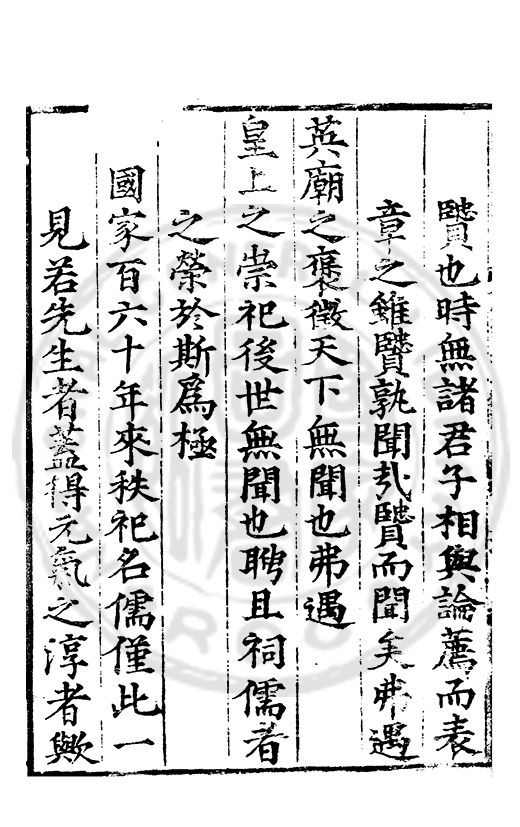 賢也時無諸君子相與論薦而表
章之雖賢孰聞哉賢而聞矣弗遇
英廟之褒徵天下無聞也弗遇
皇上之崇祀後世無聞也聘且祠儒者
之榮於斯為極
國家百六十年來秩祀名儒僅此一
見若先生者蓋得元氣之淳者歟